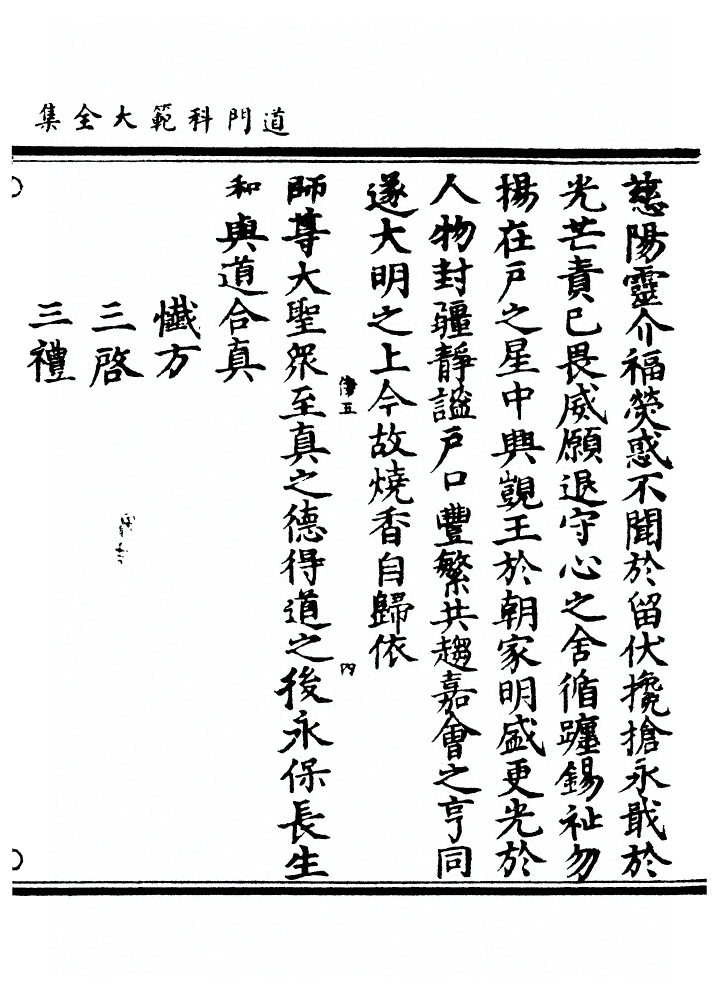 道門科範大全集
慈陽靈介福熒惑不聞於留伏攙搶永戢於
光芒責已畏威願退守心之舍循躔錫祉勿
揚在戸之星中興覲王於朝家明盛更光於
人物封疆靜謐戸口豐繁共趨嘉會之亨同
遂大明之上今故燒香自歸依
師尊大聖眾至真之德得道之後永保長生
和與道合真
懴方
三啓
三禮